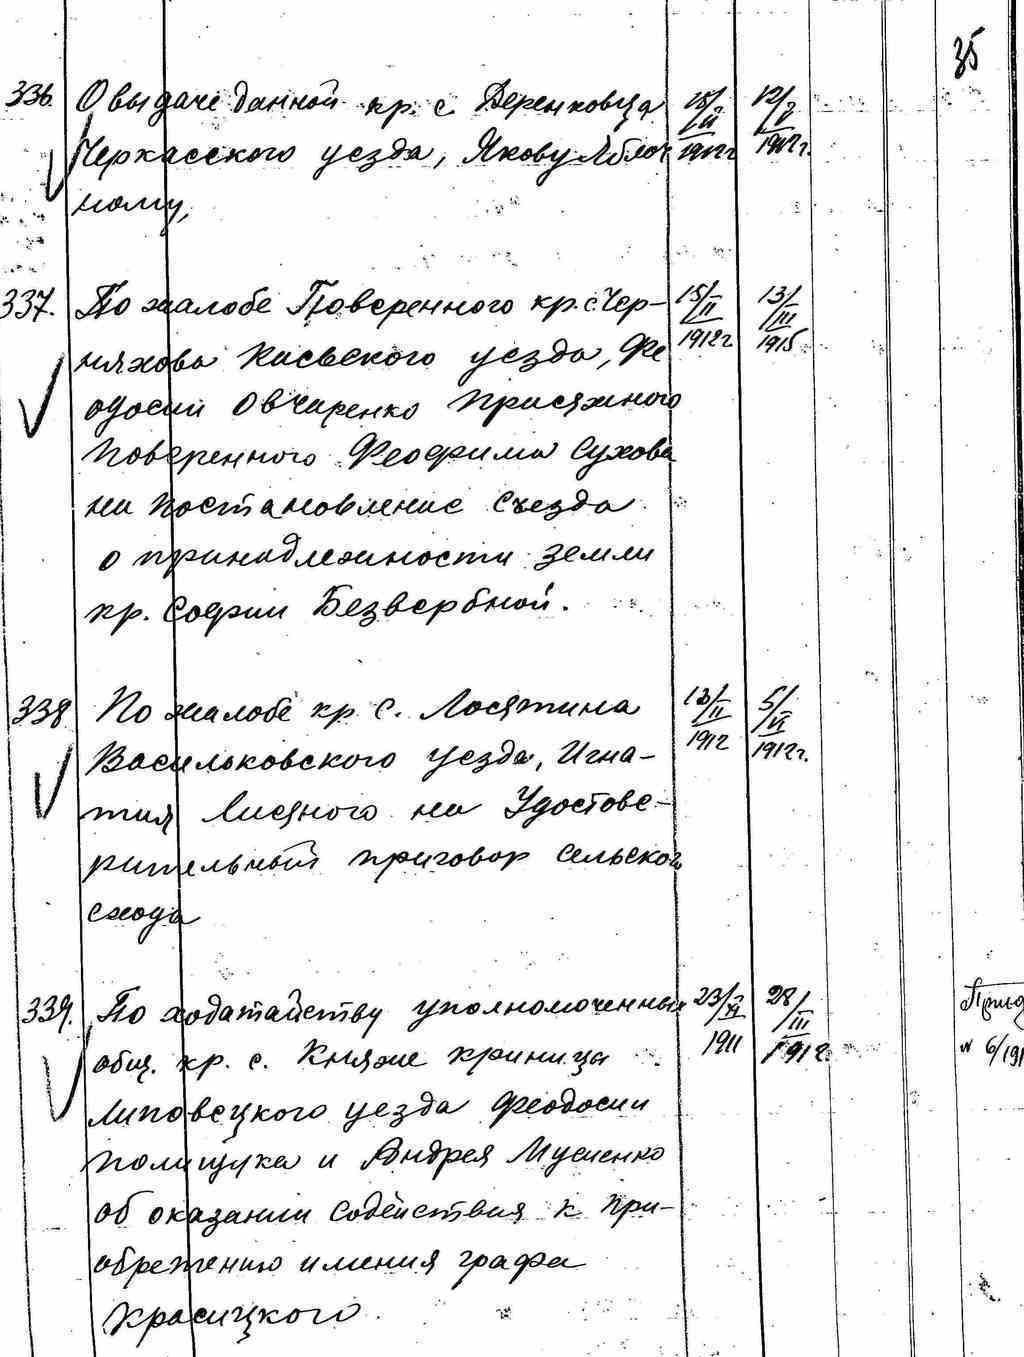 35
336. О выдаче данной кр. с. Деренковца
Черкасского уезда, Якову Яблоч
ному,
1912 г
12/V 1912 г.
337. По жалобе Поверенного кр. с. Чер-
няхова Киевского уезда, Фе
одосии Овчаренко присяжного
поверенного Феофима Сухова
на постановление съезда
о принадлежности земли
кр. Софии Безвербной.
15/II 1912 г
13/III 1915
338 По жалобе кр с. Лосятина
Васильковского уезда, Игна-
тия Лисяного на Удостове-
рительный приговор сельского
схода
13/II 1912
5/VI 1912 г.
339. По ходатайству уполномоченных
общ. кр. с. Княже криница
Липовецкого уезда Феодосии
Полищука и Андрея Мусиенко
об оказании содействия к при-
обретению имения графа
Красицкого.
23/XI 1911
28/III 1912
№ 6/191